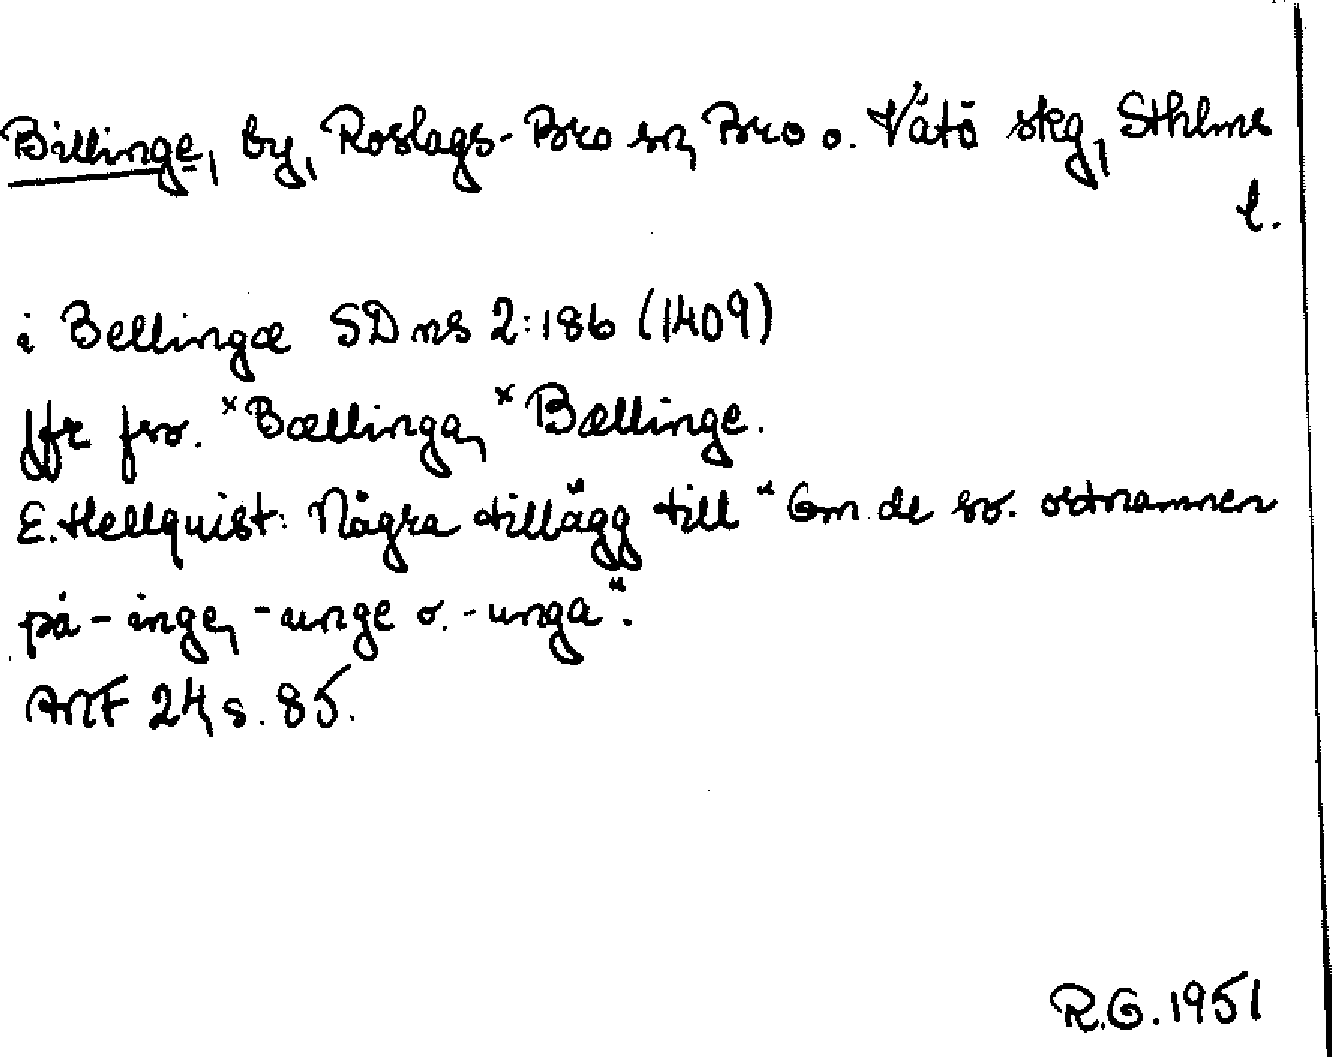 Billinge, by, Roslags-Bro sn, Bro o. Vätö skg, Sthlms
l.
i Bellingæ SD ns 2:186 (1409)
Jfr fsv. ˣBællinga, ˣBællinge.
E. Hellquist: Några tillägg till "Om de sv. ortnamnen
på -inge, -unge o. -unga".
ANF 24, s. 85.
R.G. 1951